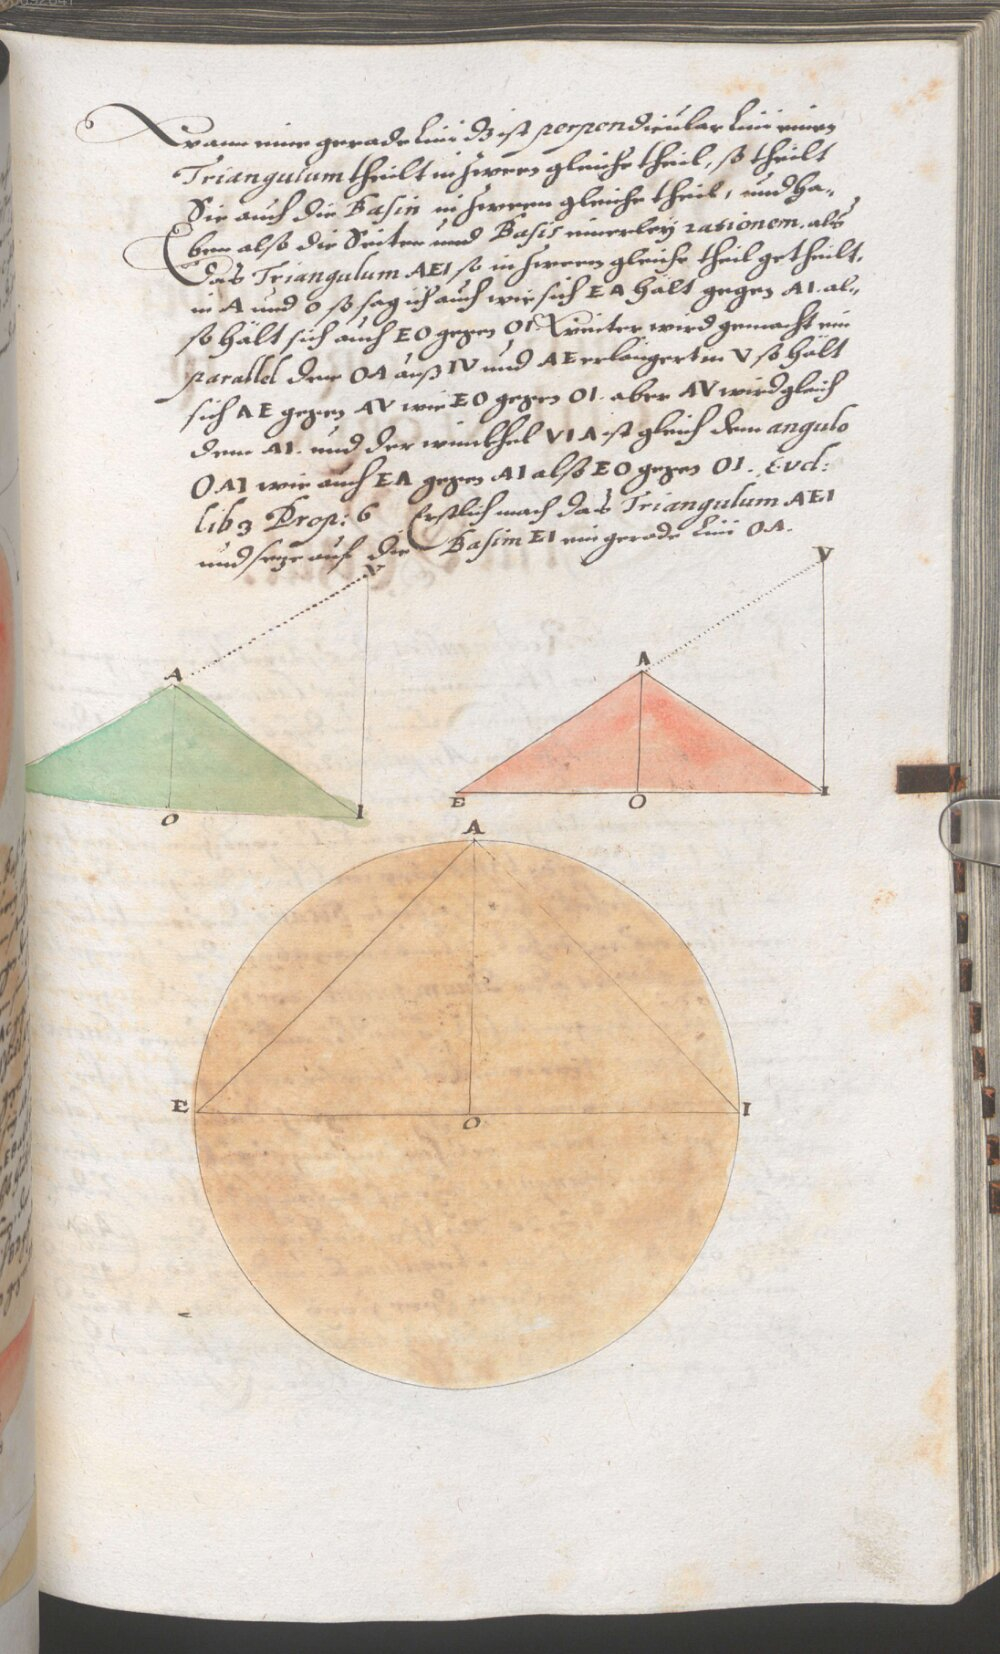 Wann eine gerade Lini dz ist perpendicular Lini einen
Triangulum theilt in zween gleiche theil, so theilt
Sie auch die Basin in zween gleiche theil, und ha-
ben also die Seiten und Basis einerley rationem. als
Das Triangulum AEI so in zween gleiche theil getheilt,
in A und O so sag ich auch wie sich EA hält gegen AI. al-
so hält sich auch EO gegen OI. Weiter wird gemacht ein
parallel dem OA auß IV und AE erlängert in V so hält
sich AE gegen AV wie EO gegen OI. aber AV wird gleich
dem AI. und der winckhel VIA ist gleich dem angulo
OAI wie auch EA gegen AI also EO gegen OI. Eucl:
lib 3 Prop: 6 Erstlich mach das Triangulum AEI
und seze auf die Basim EI ein gerade Lini OA.
V
V
A
A
O
I
E
O
I
A
E
O
I